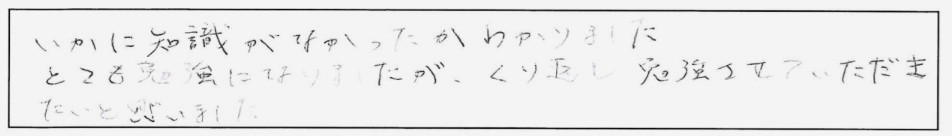 いかに知識がなかったかわかりました
とても勉強になりましたが、くり返し 勉強させていただき
たいと思いました